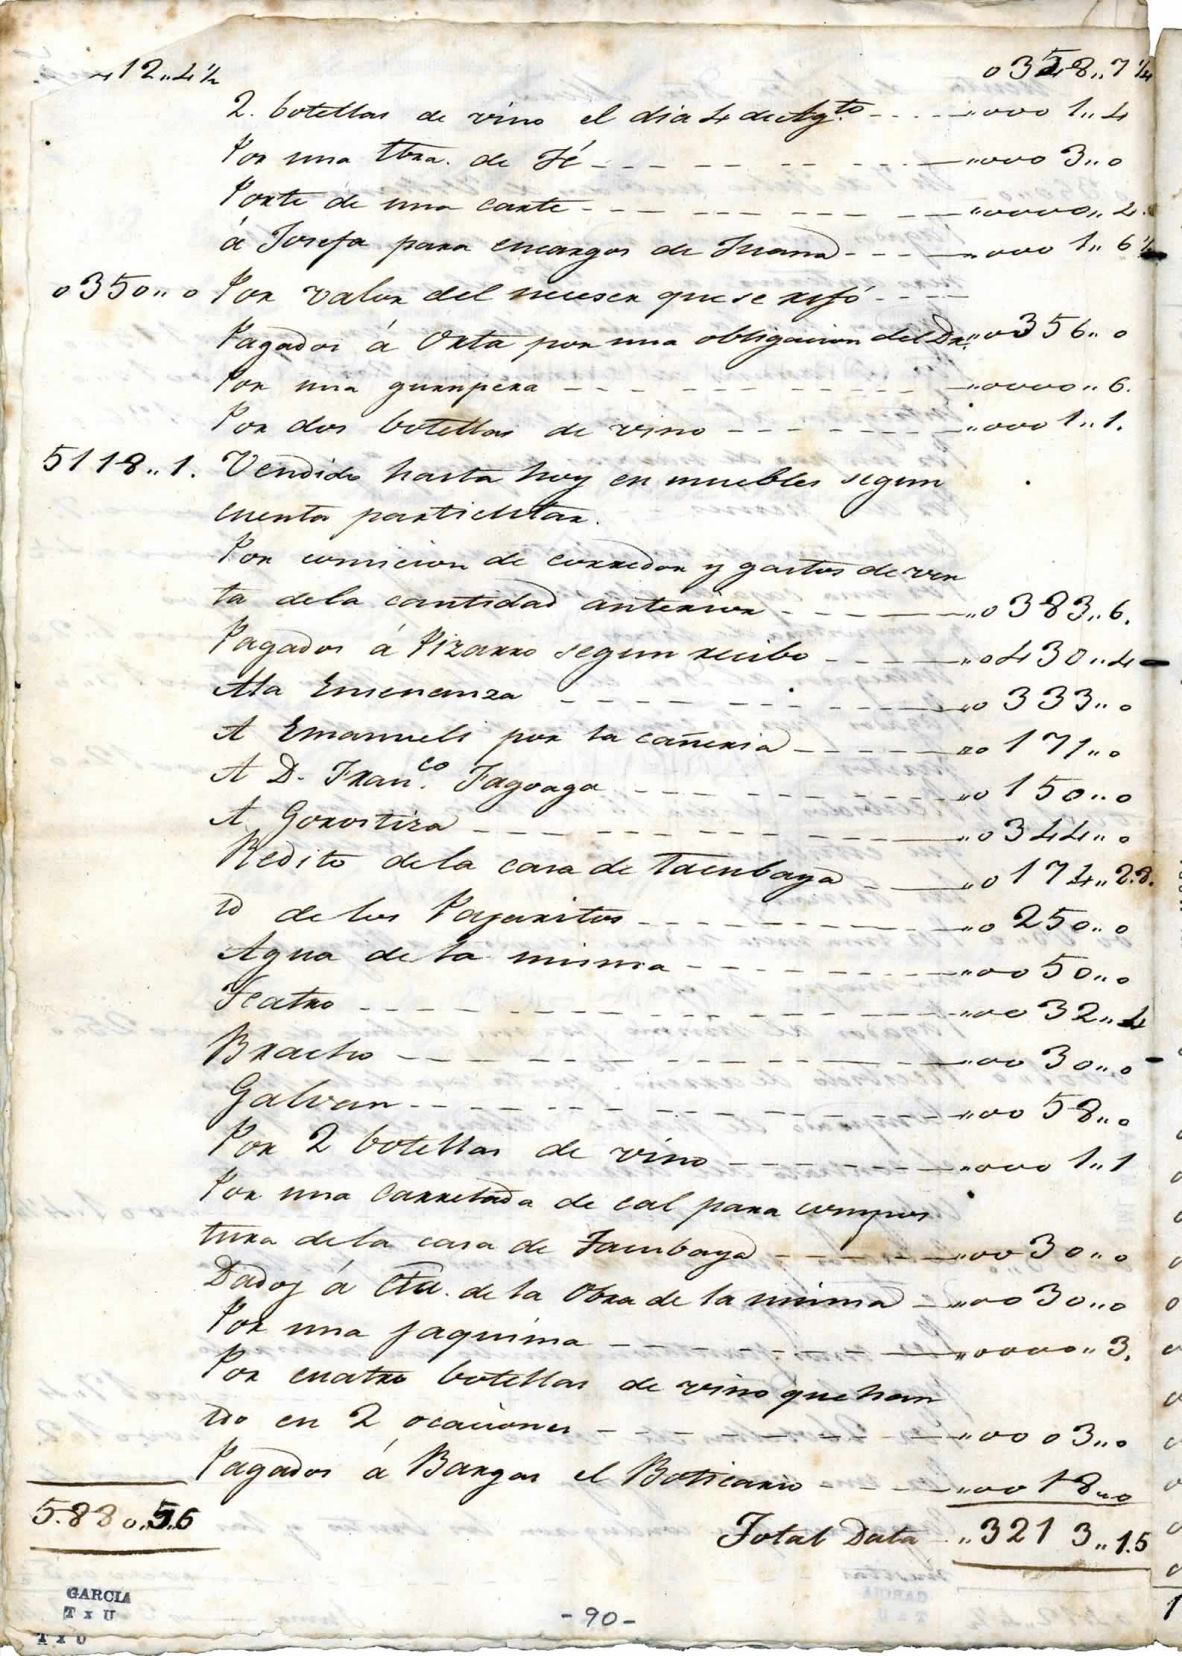 412..4½ 0358..7¼
2. botellas de vino el dia 4 de Agto. ..000 1..4
Por una lbra. de Té ..000 3..0
Porte de una carte ..0000..2.
á Josefa para encargos de Juana ..000 1..6½
0350..0 Por valor del neceser que se rifó
Pagados á Orta por una obligacion del Dr. ..0356..0
Por una gurupera ..0000..6.
Por dos botellas de vino ..000 1..1.
5118..1. Vendido hasta hoy en muebles segun
cuenta particular.
Por comicion de corredor y gastos de ven
ta de la cantidad anterior ..0383..6.
Pagados á Pizarro segun recibo ..0430..4
A la Ensenanza ..0 333..0
A Emanueli por la cañeria ..0171..0
A D. Franco. Fagoaga ..0150..0
A Gorostiza ..0344..0
Redito de la casa de Tacubaya ..0174..2.
id de los Pajaritos ..0250..0
Agua de la misma ..0050..0
Teatro ..0032..4
Bracho ..0030..0
Galvan ..0058..0
Por 2 botellas de vino ..000 1..1
Por una carretada de cal para compos
tura de la casa de Tacubaya ..0030..0
Dados á Cta. de la Obra de la misma ..0030..0
Por una jaquima ..0000..3.
Por cuatro botellas de vino que han
ido en 2 ocaciones ..0003..0
Pagados á Bargas el Boticario ..0018..0
5.880..5.6 Total Data ..3213..1.5
GARCIA
T x U
T x U
-90-